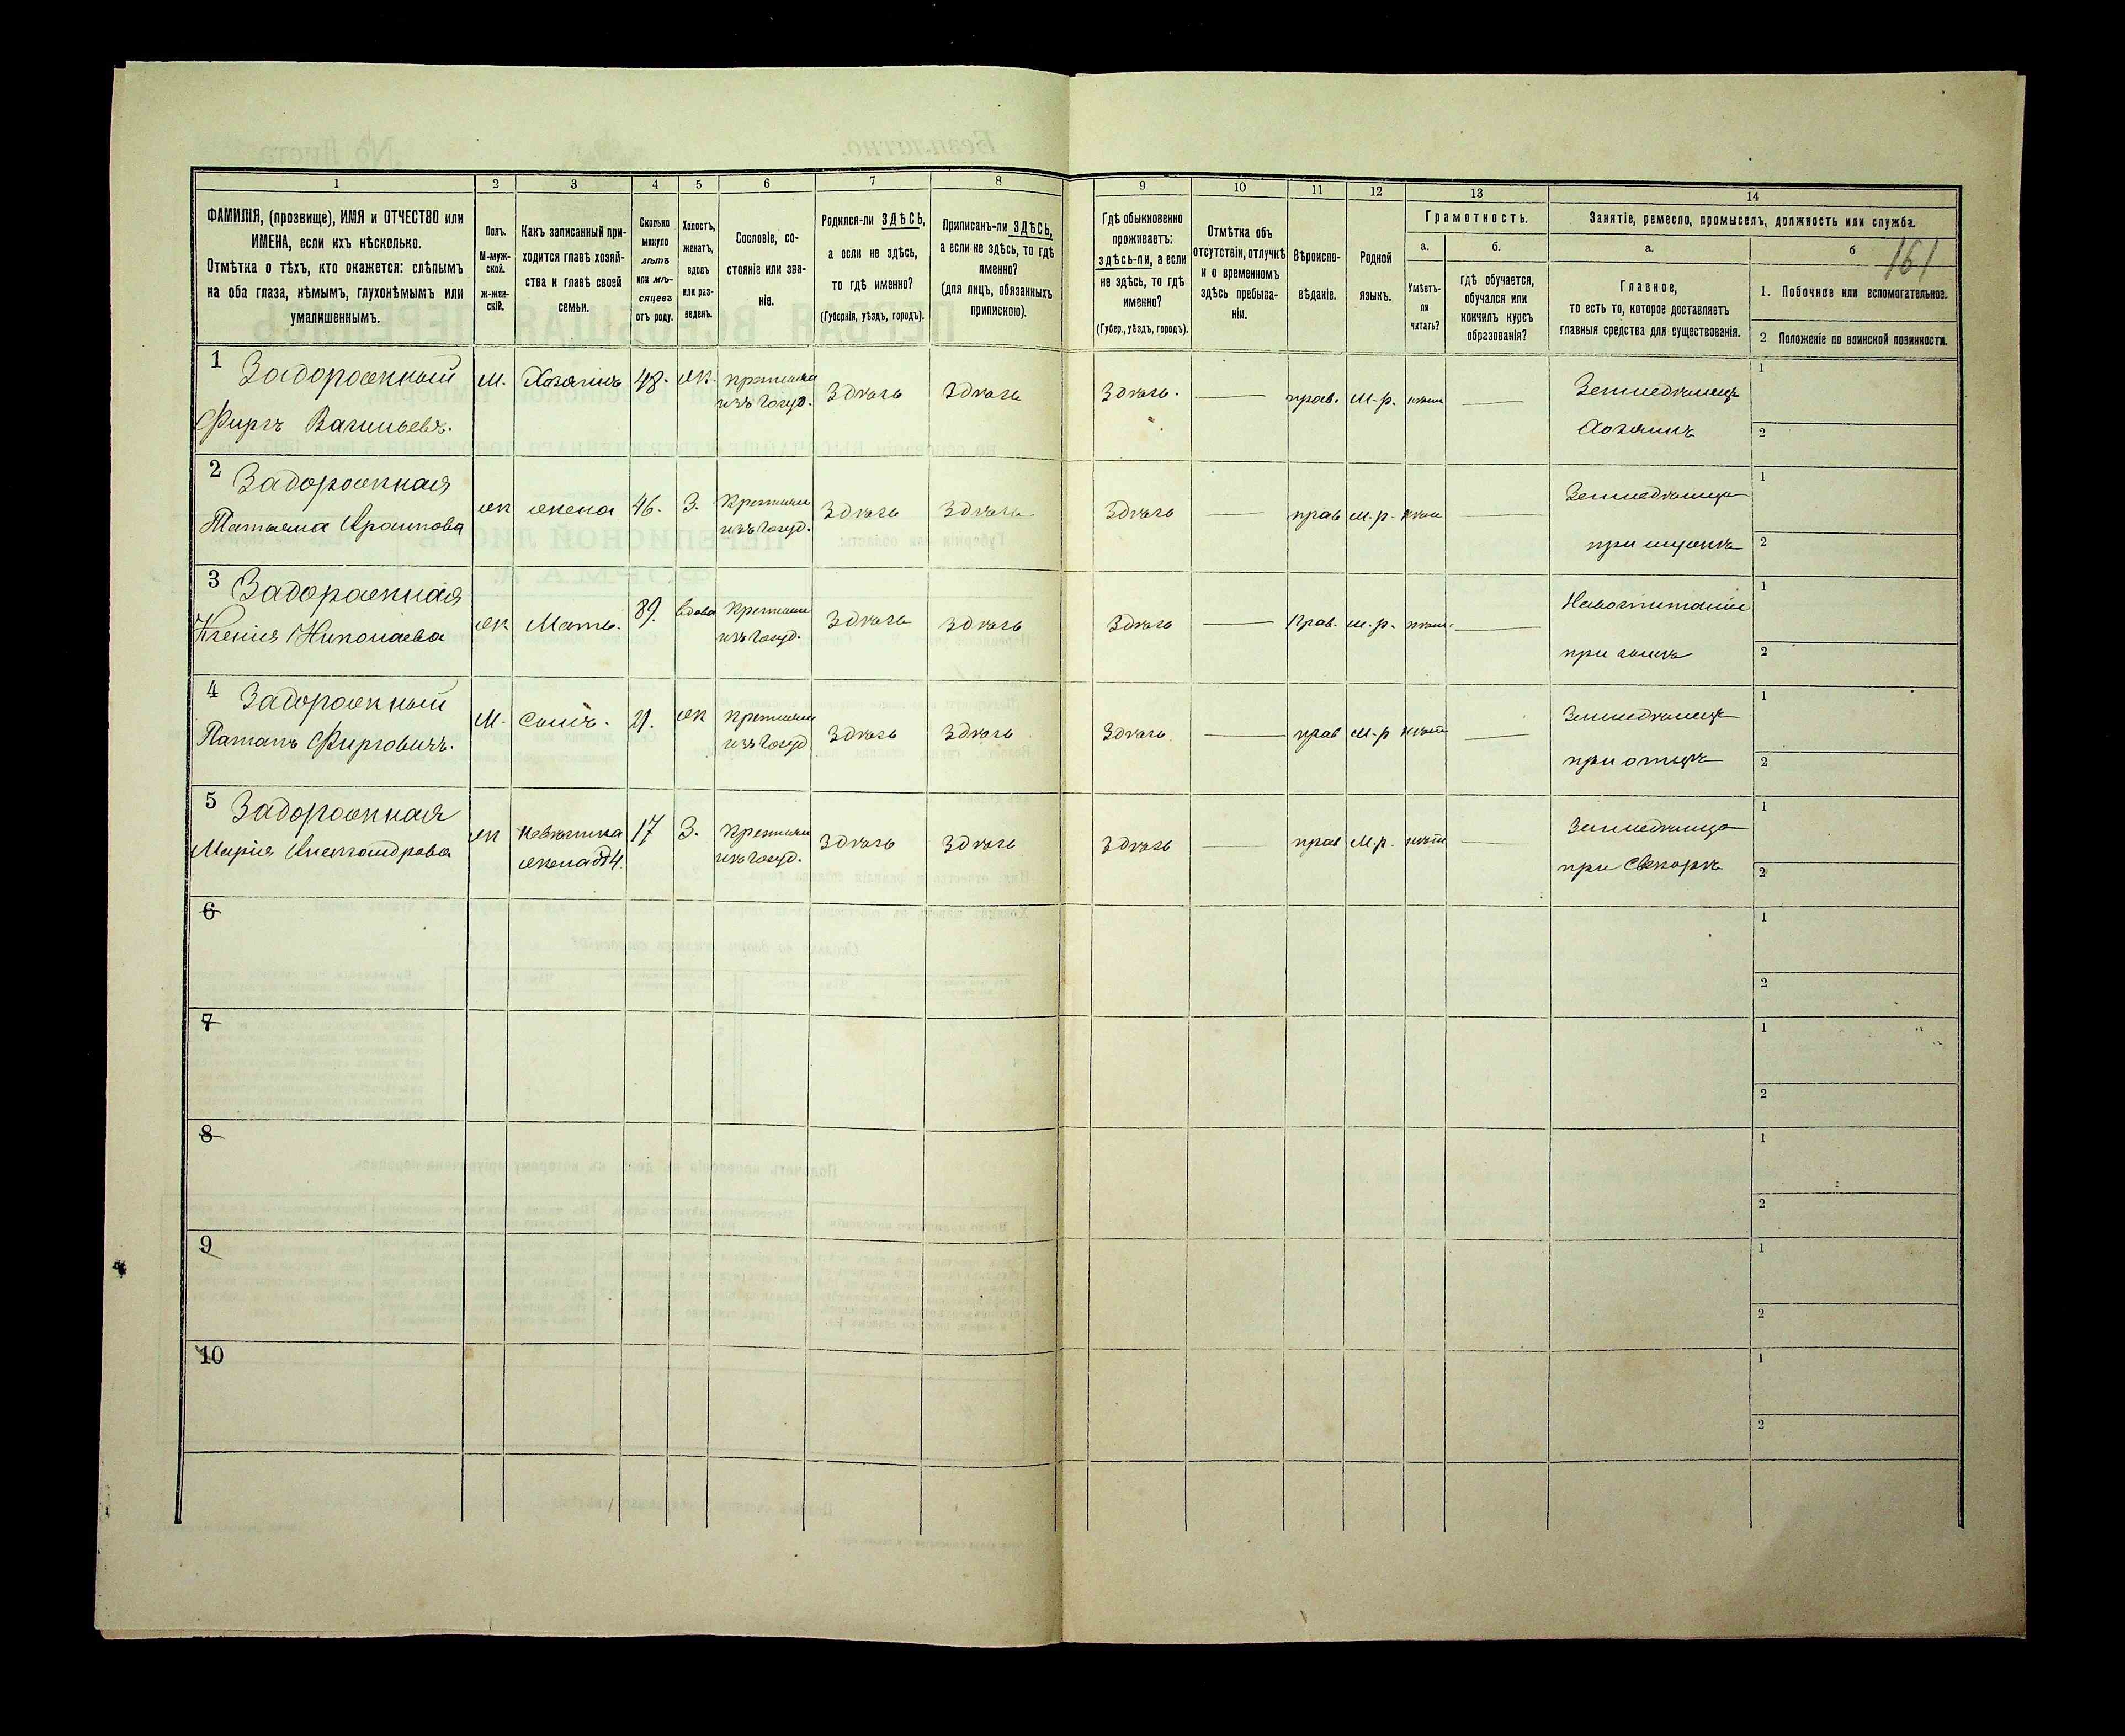 1
2
3
4
5
6
7
8
9
10
11
12
13
14
ФАМИЛІЯ, (прозвище), ИМЯ и ОТЧЕСТВО или
ИМЕНА, если ихъ нѣсколько.
Отмѣтка о тѣхъ, кто окажется: слѣпымъ
на оба глаза, нѣмымъ, глухонѣмымъ или
умалишеннымъ.
Полъ.
М-муж-
ской.
ж-жен-
скій.
Какъ записанный при-
ходится главѣ хозяй-
ства и главѣ своей
семьи.
Сколько
минуло
лѣтъ
или мѣ-
сяцевъ
отъ роду.
Холостъ,
женатъ,
вдовъ
или раз-
веденъ.
Сословіе, со-
стояніе или зва-
ніе.
Родился-ли ЗДѢСЬ,
а если не здѣсь,
то гдѣ именно?
(Губернія, уѣздъ, городъ).
Приписанъ-ли ЗДѢСЬ,
а если не здѣсь, то гдѣ
именно?
(для лицъ, обязанныхъ
припискою).
Гдѣ обыкновенно
проживаетъ:
здѣсь-ли, а если
не здѣсь, то гдѣ
именно?
(Губер., уѣздъ, городъ).
Отмѣтка объ
отсутствіи, отлучкѣ
и о временномъ
здѣсь пребыва-
ніи.
Вѣроиспо-
вѣданіе.
Родной
языкъ.
Грамотность.
а.
Умѣетъ-
ли
читать?
б.
гдѣ обучается,
обучался или
кончилъ курсъ
образованія?
Занятіе, ремесло, промыселъ, должность или служба.
а.
Главное,
то есть то, которое доставляетъ
главныя средства для существованія.
б
161
1. Побочное или вспомогательное.
2 Положеніе по воинской повинности.
1 Задорожный М. Хозяинъ 48. ж. Крестьян Здѣсь Здѣсь Здѣсь. прав. м.-р. нѣтъ Земледѣлецъ 1
Фирсъ Васильевъ. изъ госуд. Хозяинъ 2
2 Задорожная ж жена 46. З. Крестьян Здѣсь Здѣсь Здѣсь прав м.-р. нѣтъ Земледѣлица 1
Татьяна изъ госуд. при мужѣ 2
3 Задорожная ж. Мать. 89. вдова Крестьян Здѣсь Здѣсь Здѣсь прав. м.-р. нѣтъ. 1
Ксенія Николаева изъ госуд. при сынѣ 2
4 Задорожный М. Сынъ. 21. ж Крестьян Здѣсь Здѣсь Здѣсь прав м-р нѣтъ Земледѣлецъ 1
Патапъ Фирсовичъ. изъ госуд при отцѣ 2
5 Задорожная ж невѣстка 17 З. Крестьян Здѣсь Здѣсь Здѣсь прав м.-р. нѣтъ Земледѣлица 1
Марія Александрова жена №4. изъ госуд. при Свекорѣ 2
6
1
2
7
1
2
8
1
2
9
1
2
10
1
2